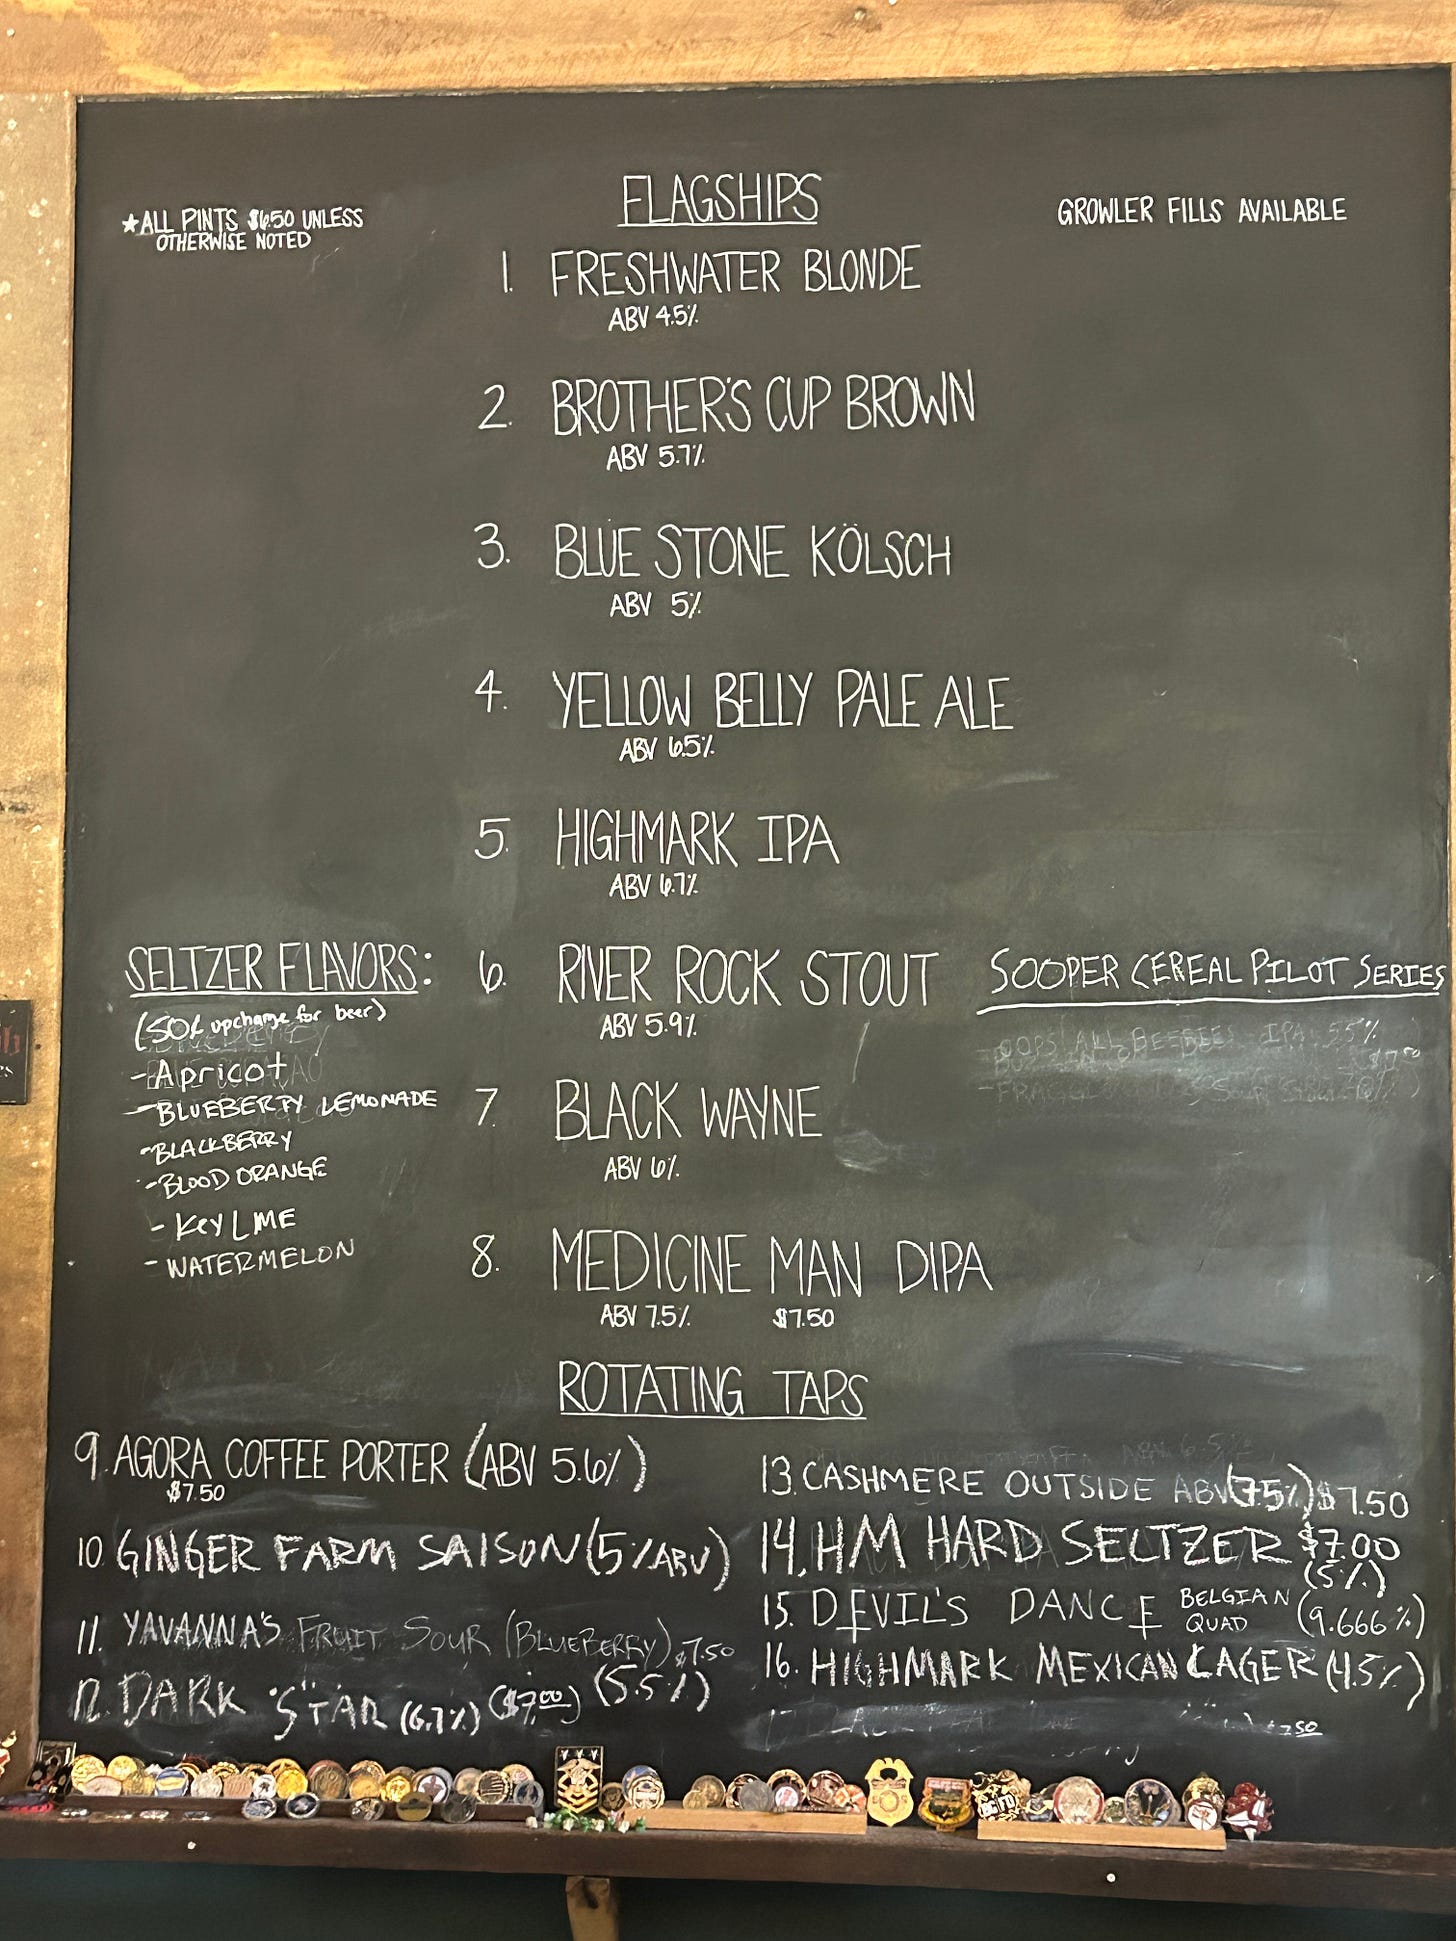 FLAGSHIPS
★ALL PINTS $6.50 UNLESS
OTHERWISE NOTED
GROWLER FILLS AVAILABLE
1. FRESHWATER BLONDE
ABV 4.5%
2. BROTHER'S CUP BROWN
ABV 5.7%
3. BLUE STONE KÖLSCH
ABV 5%
4. YELLOW BELLY PALE ALE
ABV 6.5%
5. HIGHMARK IPA
ABV 6.7%
6. RIVER ROCK STOUT
ABV 5.9%
7. BLACK WAYNE
ABV 6%
8. MEDICINE MAN DIPA
ABV 7.5% $7.50
SELTZER FLAVORS:
(50¢ upcharge for beer)
-Apricot
-BLUEBERRY LEMONADE
-BLACKBERRY
-BLOOD ORANGE
- KEY LIME
- WATERMELON
SOOPER CEREAL PILOT SERIES
OOPS! ALL BEEBIES IPA 5.5%
ROTATING TAPS
9. AGORA COFFEE PORTER (ABV 5.6%)
$7.50
10. GINGER FARM SAISON (5% ABV)
11. YAVANNA'S FRUIT SOUR (BLUEBERRY) $7.50
(5.5%)
12. DARK STAR (6.7%) ($7.00)
13. CASHMERE OUTSIDE ABV (7.5%) $7.50
14. HM HARD SELTZER $7.00
(5%)
15. DEVIL'S DANCE BELGIAN QUAD (9.666%)
16. HIGHMARK MEXICAN LAGER (4.5%)